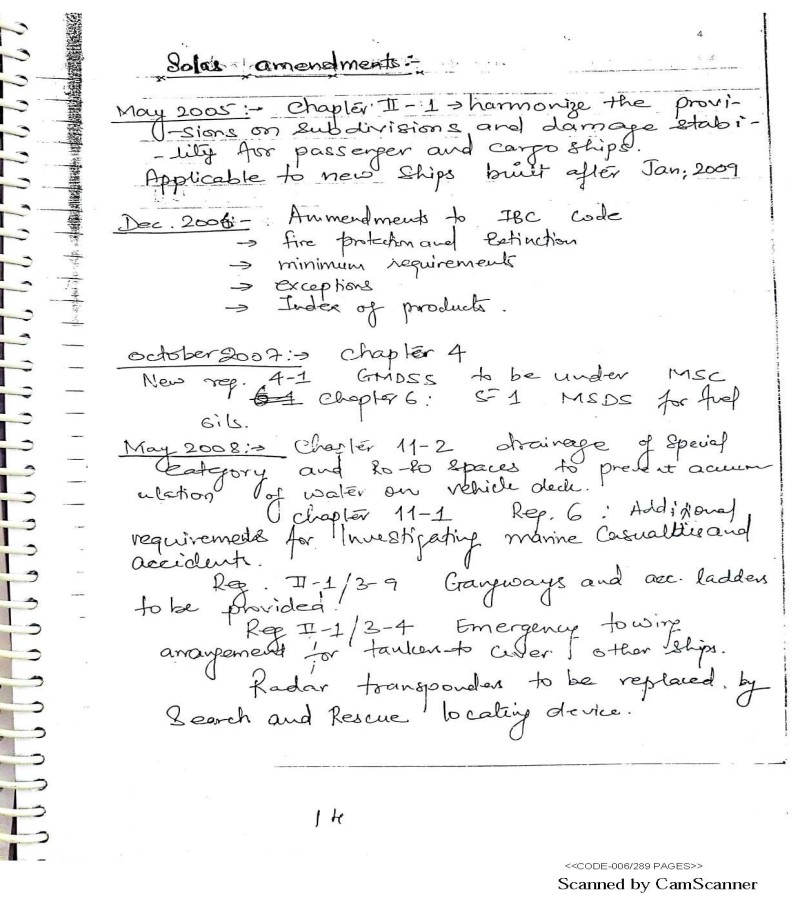 4
Solas amendments:-
May 2005:- Chapter II-1 → harmonize the provi-
-sions on subdivisions and damage stabi-
-lity for passenger and cargo ships.
Applicable to new ships built after Jan; 2009
Dec. 2006:- Ammendments to IBC code
→ fire protection and Extinction
→ minimum requirements
→ exceptions
→ Index of products.
october 2007:→ chapter 4
New reg. 4-1 GMDSS to be under MSC
6-1 chapter 6: 5-1 MSDS for fuel
oils.
May 2008:→ Chapter 11-2 drainage of special
category and Ro-Ro spaces to prevent accum
ulation of water on vehicle deck.
chapter 11-1 Reg. 6: Additional
requirements for Investigating marine Casualties and
accidents.
Reg. II-1/3-9 Gangways and acc. ladders
to be provided.
Reg II-1/3-4 Emergency towing
arrangement for tankers to cover other ships.
Radar transponders to be replaced by
Search and Rescue locating device.
<<CODE-006/289 PAGES>>
Scanned by CamScanner